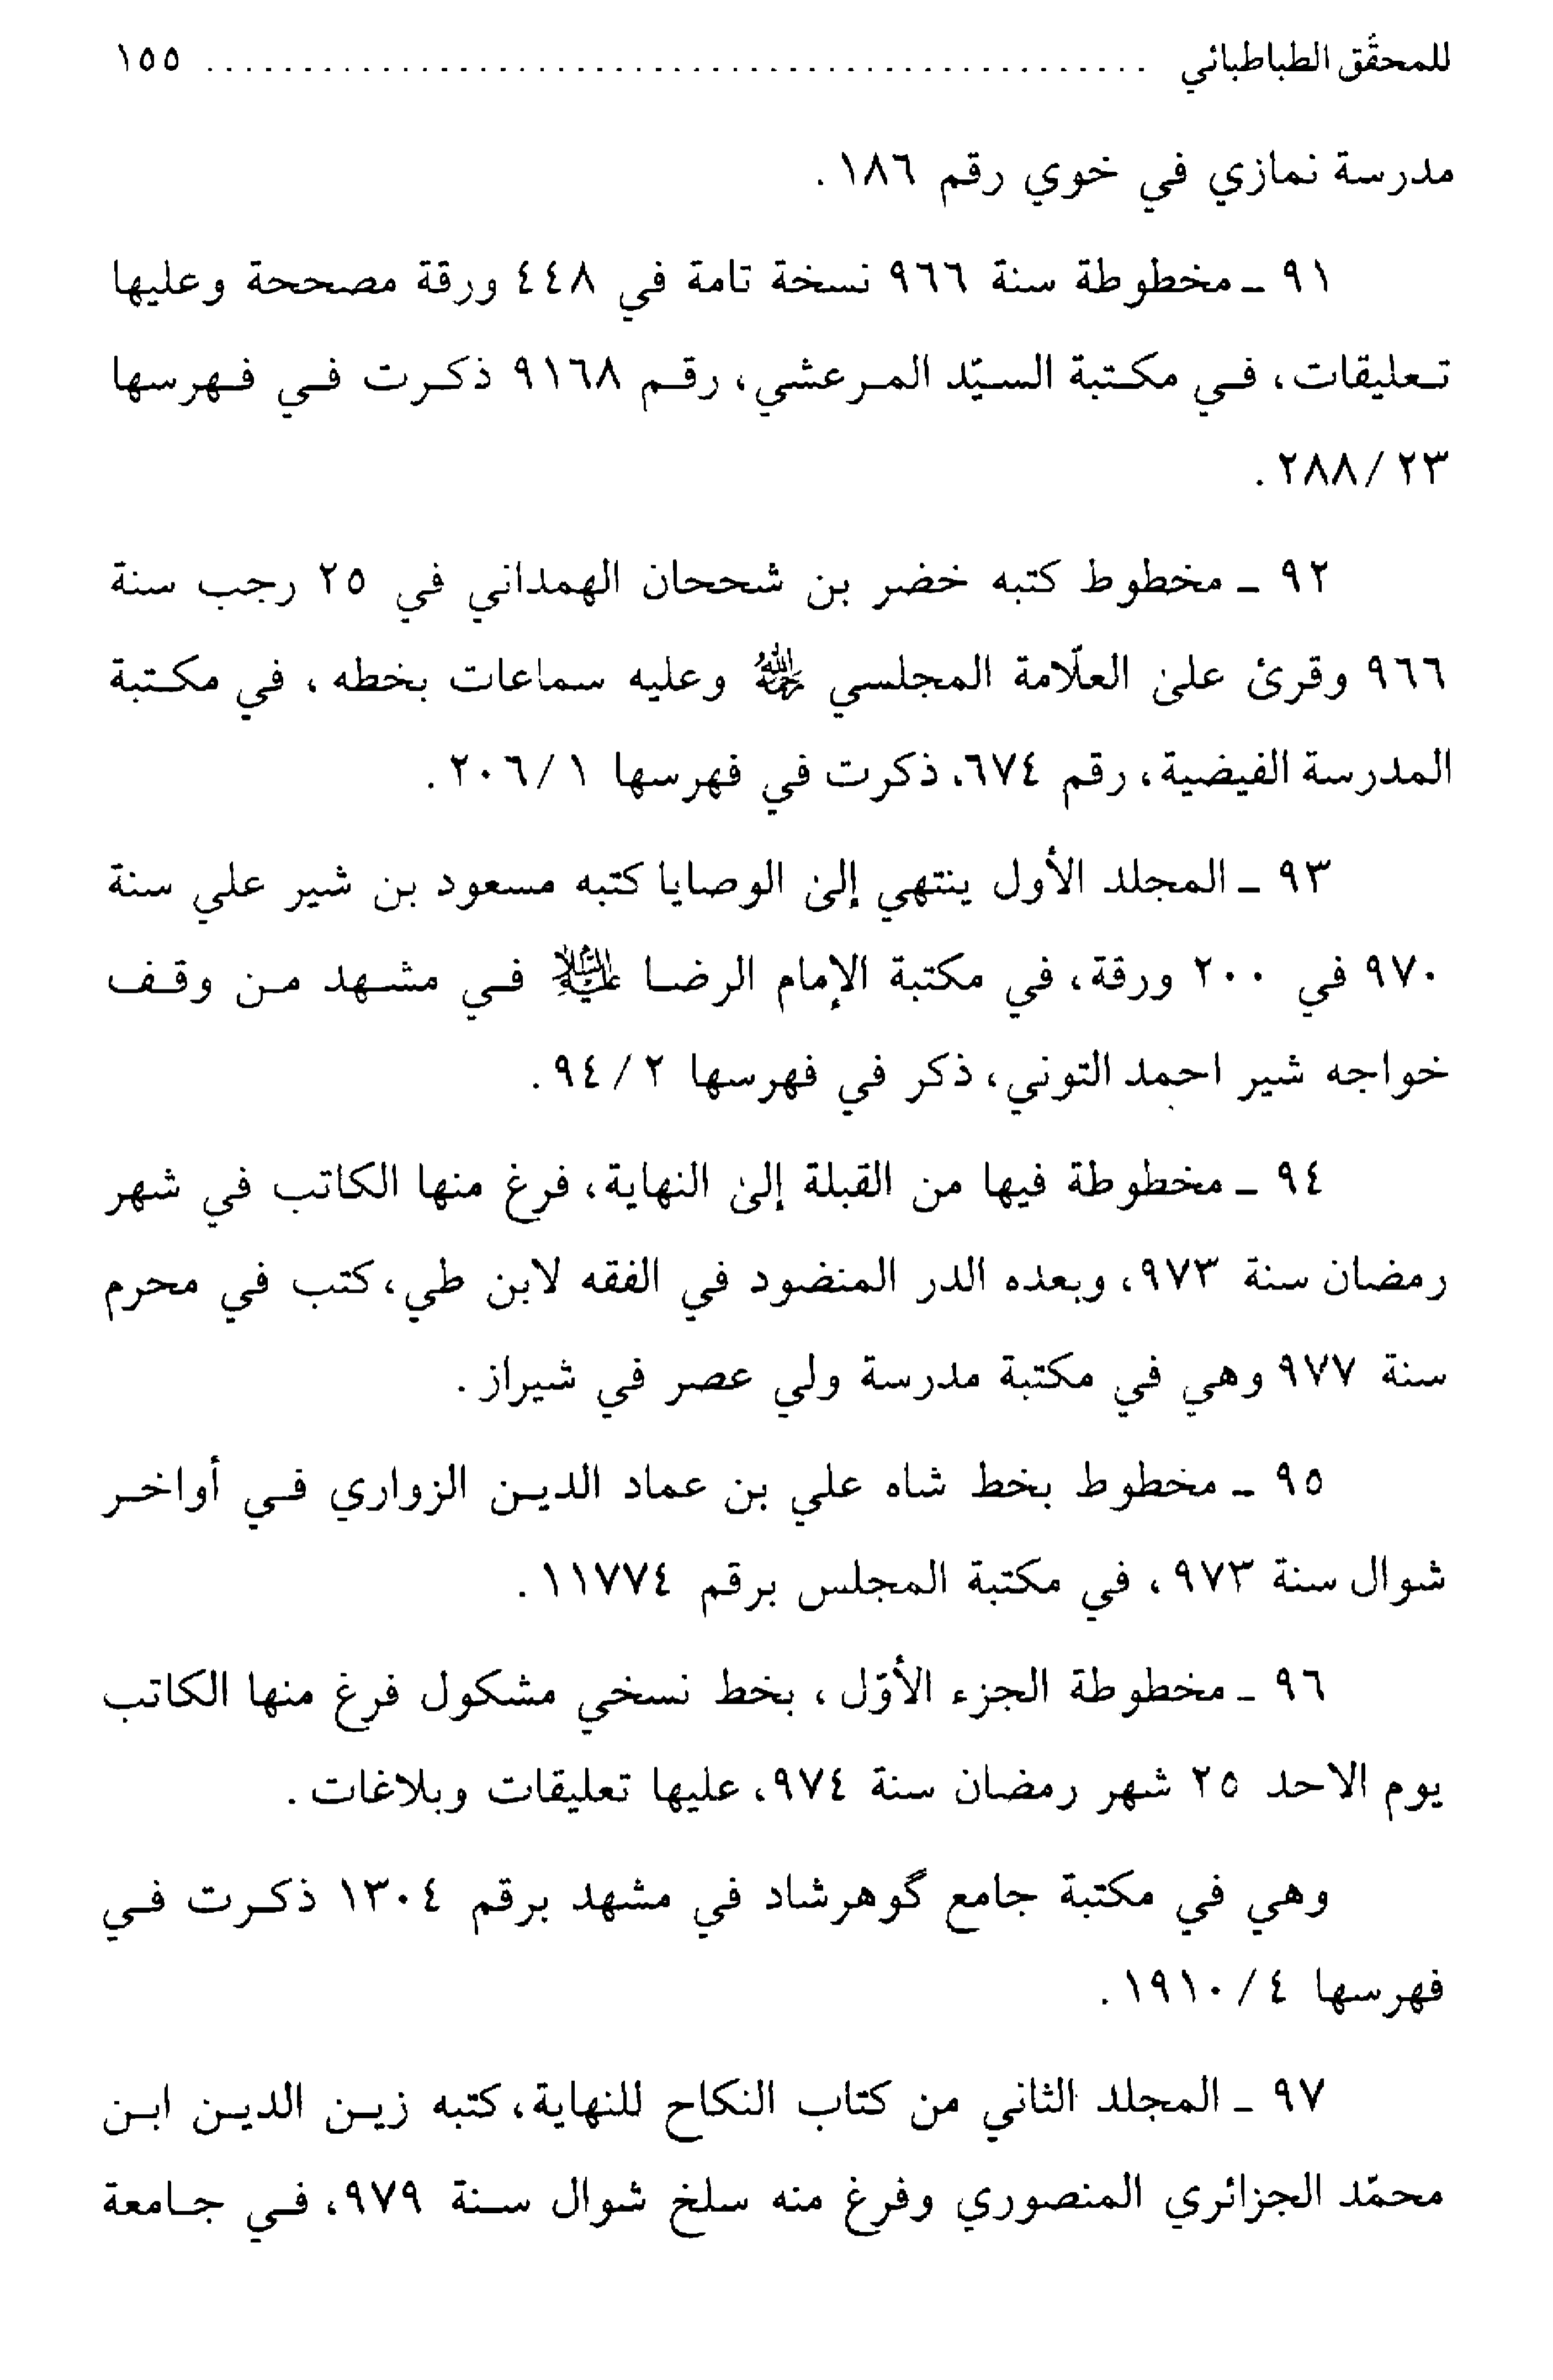 للمحقّق الطباطبائي ................................................ ١٥٥
مدرسة نمازي في خوي رقم ١٨٦ .
٩١ ـ مخطوطة سنة ٩٦٦ نسخة تامة في ٤٤٨ ورقة مصححة وعليها
تعليقات، في مكتبة السيّد المرعشي، رقم ٩١٦٨ ذكرت في فهرسها
٢٣ /٢٨٨ .
٩٢ ـ مخطوط كتبه خضر بن شححان الهمداني في ٢٥ رجب سنة
٩٦٦ وقرئ علىٰ العلّامة المجلسي ﵀ وعليه سماعات بخطه، في مكتبة
المدرسة الفيضية، رقم ٦٧٤، ذكرت في فهرسها ١ /٢٠٦ .
٩٣ ـ المجلد الأول ينتهي إلىٰ الوصايا كتبه مسعود بن شير علي سنة
٩٧٠ في ٢٠٠ ورقة، في مكتبة الإمام الرضا ﵇ في مشهد من وقف
خواجه شير احمد التوني، ذكر في فهرسها ٢ /٩٤ .
٩٤ ـ مخطوطة فيها من القبلة إلىٰ النهاية، فرغ منها الكاتب في شهر
رمضان سنة ٩٧٣، وبعده الدر المنضود في الفقه لابن طي، كتب في محرم
سنة ٩٧٧ وهي في مكتبة مدرسة ولي عصر في شيراز .
٩٥ ـ مخطوط بخط شاه علي بن عماد الدين الزواري في أواخر
شوال سنة ٩٧٣، في مكتبة المجلس برقم ١١٧٧٤ .
٩٦ ـ مخطوطة الجزء الأوّل، بخط نسخي مشكول فرغ منها الكاتب
يوم الاحد ٢٥ شهر رمضان سنة ٩٧٤، عليها تعليقات وبلاغات .
وهي في مكتبة جامع گوهرشاد في مشهد برقم ١٣٠٤ ذكرت في
فهرسها ٤ /١٩١٠ .
٩٧ ـ المجلد الثاني من كتاب النكاح للنهاية، كتبه زين الدين ابن
محمّد الجزائري المنصوري وفرغ منه سلخ شوال سنة ٩٧٩، في جامعة